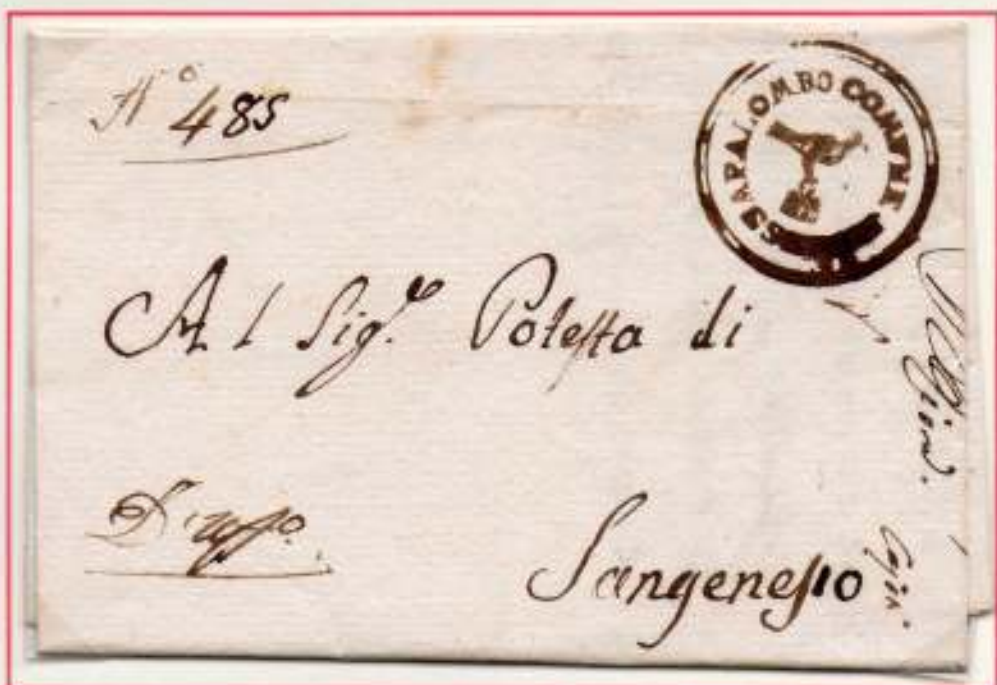 N° 485
SSAPALOMBO COMUNE
Al Sig.re Potesta di
D'uffo.
Sangenesio